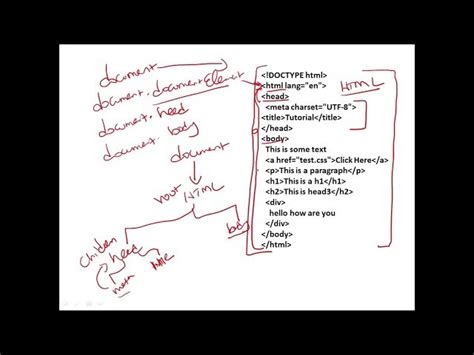 document
document.documentElement
document.head
document.body
document
root HTML
head
body
meta
title
HTML
<!DOCTYPE html>
<html lang="en">
<head>
<meta charset="UTF-8">
<title>Tutorial</title>
</head>
<body>
This is some text
<a href="test.css">Click Here</a>
<p>This is a paragraph</p>
<h1>This is a h1</h1>
<h2>This is head3</h2>
<div>
hello how are you
</div>
</body>
</html>